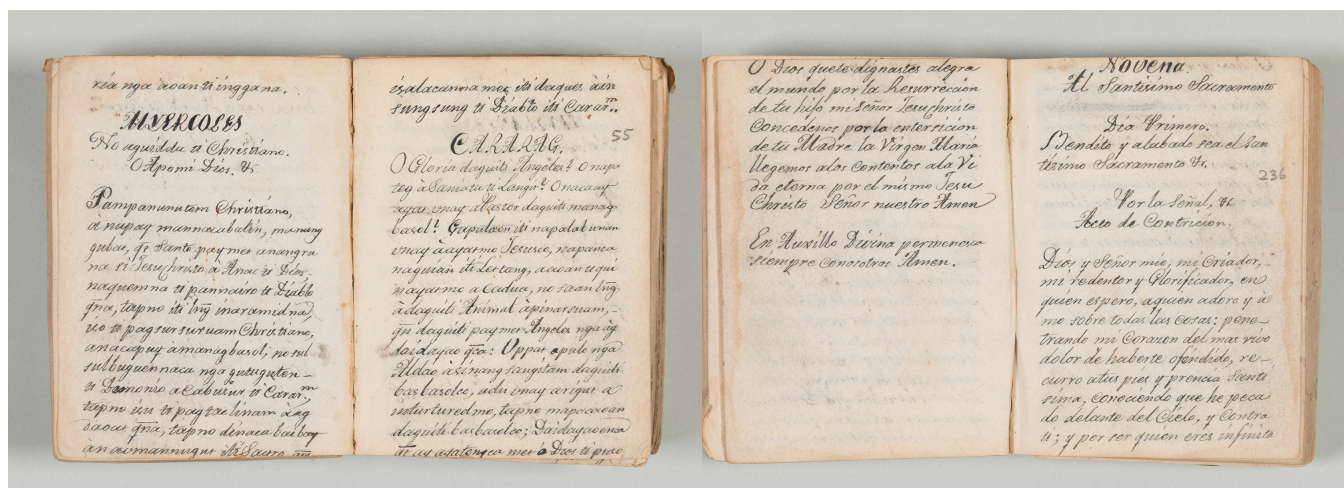 ria nga aoan ti inggana.
MVERCOLES
No aguiddu ti Christiano.
O Apomi Dios. &.
Pampanunutem Christiano,
a nupay mannacabalin, manang
gubat, qt. Santo pay met anangra
na si Jesuchristo a Anac ti Dios
naquemna ti pannairo ti Diablo
qña, tapno iti bñg inaramidna,
ti pagsursuruam Christiano,
anacapuy a managbasol; no sul
sulbuguennaca nga gutuguten
ti Demonio a Cabusur ti Carar,m
tapno iti pagtaelinam a ag
baoat qña, tapno dinaca baibay
55
isalacanna met iti daques a in
sungsung ti Diablo iti Cararm..
CARARAG.
O Gloria daguiti Angeles! O napa
teg a Saniata ti Langit! O nacaay
ayat unay a Pastor daguiti manag
basol! Gapulaen iti napalabunan
unay a ayatmo Jesusco, napanca
naguian iti Let-tang, a aoan ti qui
nayatmo a Cadua, no saan bñg
a daguiti Animal a pinarsuam,
qn daguiti pay met Angeles nga ag
daidayao qña: Uppat a pulo nga
Aldao a sinangsangitam daguiti
basbasolco, adu unay a rigat a
inturturedmo, tapno mapacaoan
daguiti basbasolco; Daidayaoenca
O Dios quete dignastes alegra
el mundo por la Resurreicion
de tu hijo mi señor Jesuchristo
Concedenos por la entersicion
de tu Madre la Virgen Maria
llegemos alos Contentos ala Vi
da eterna por el mismo Jesu
Christo Señor nuestro Amen
En Auxillo Divina permenesca
siempre Conosotros Amen.
Novena
Al Santisimo Sacramento
Dia Primero.
Bendito y alabado sea el San
tisimo Sacramento &.
236
Por la Señal, &
Acto de Contricion.
Dios y Señor mio, mi Criador,
mi redentor y Glorificador, en
quien espero, aquien adoro y a
mo sobre todas las Cosas: pene-
trando mi Corazon del mas vivo
dolor de haberte ofendido, re-
curro atus pies y prencia Santi
sima, Conociendo que he peca
do delante del Cielo, y Contra
ti; y por ser quien eres infinita